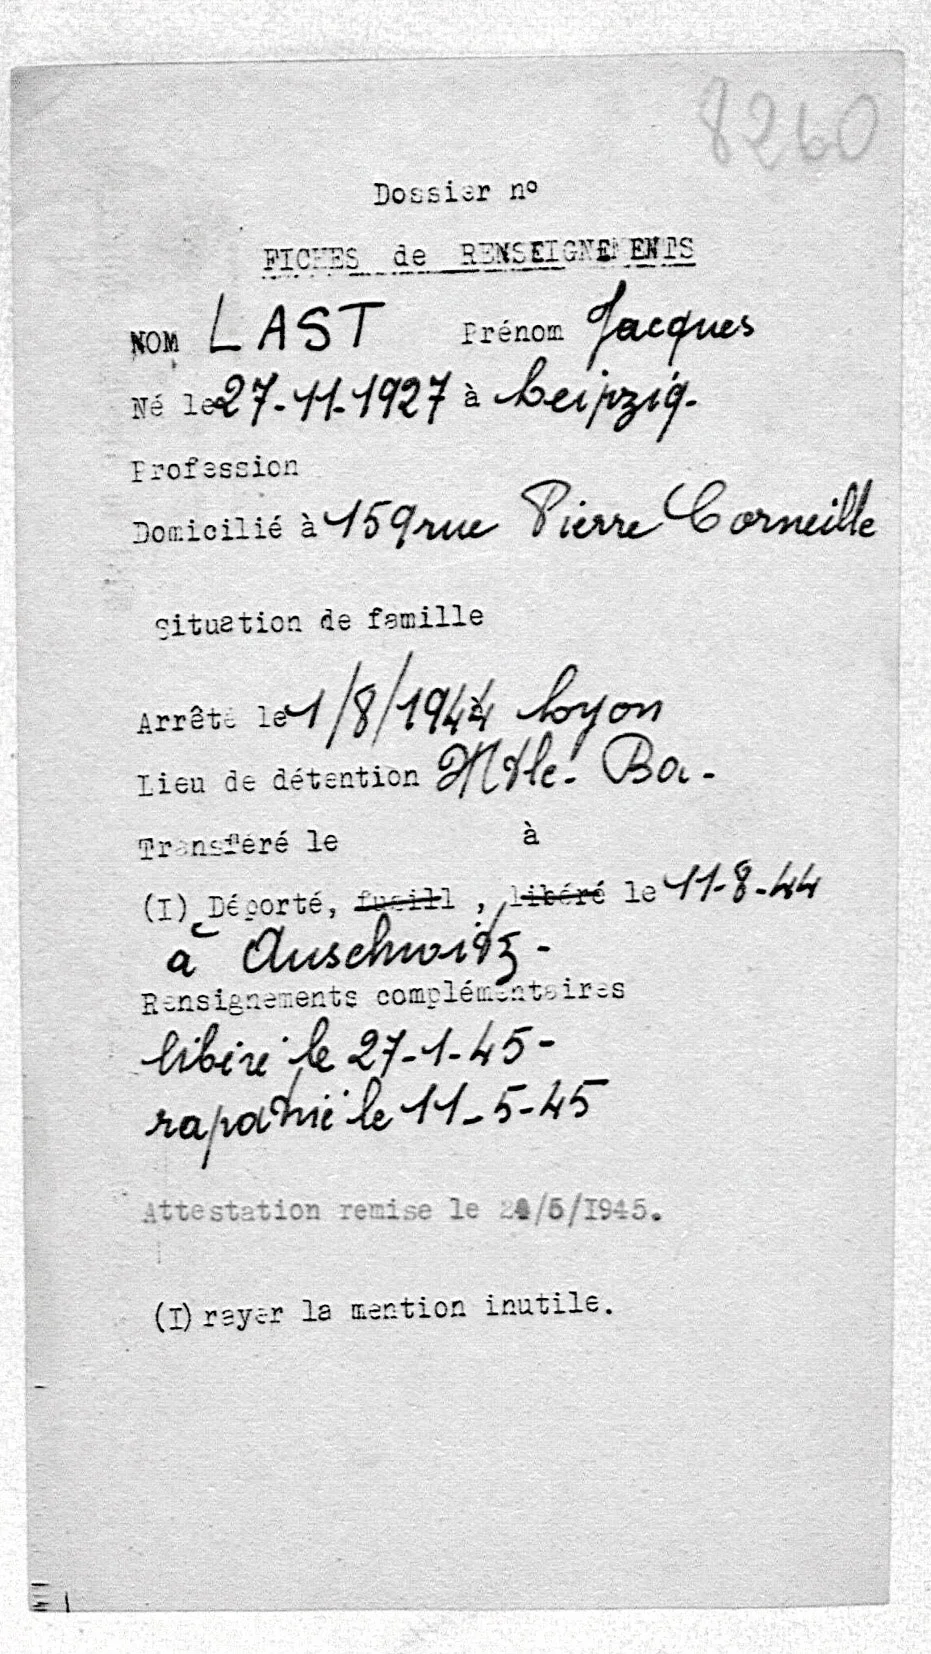 8260
Dossier nº
FICHES de RENSEIGNEMENTS
NOM LAST Prénom Jacques
Né le 27-11-1927 à Leipzig.
Profession
Domicilié à 159 rue Pierre Corneille
Situation de famille
Arrêté le 1/8/1944 à Lyon
Lieu de détention Mtle. Boi -
Transféré le à
(I) Déporté, fusill , libéré le 11-8-44
à Auschwitz -
Rensignements complémentaires
libéré le 27-1-45-
rapatrié le 11-5-45
Attestation remise le /5/I945.
(I) rayer la mention inutile.